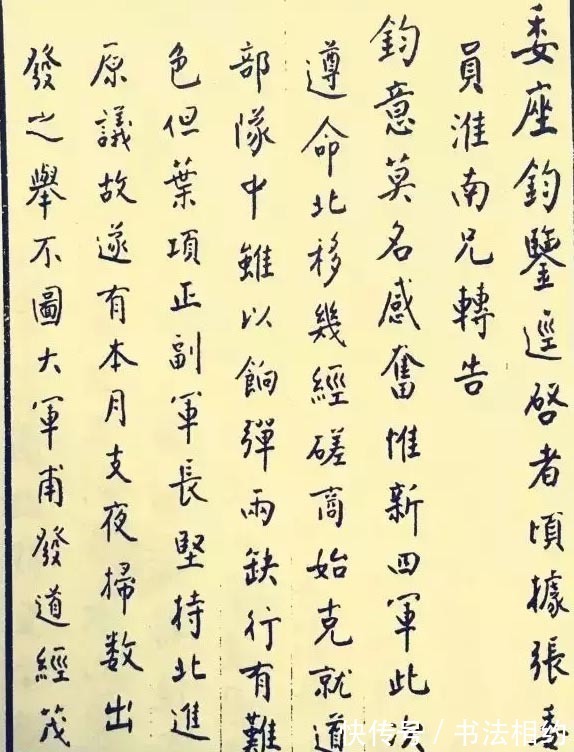 委座鈞鑒逕啓者頃據張
員淮南兄轉告
鈞意莫名感奮惟新四軍此次
遵命北移幾經磋商始克就道
部隊中雖以餉彈兩缺行有難
色但葉項正副軍長堅持北進
原議故遂有本月支夜掃数出
發之舉不圖大軍甫發道經茂
快传号/书法相约